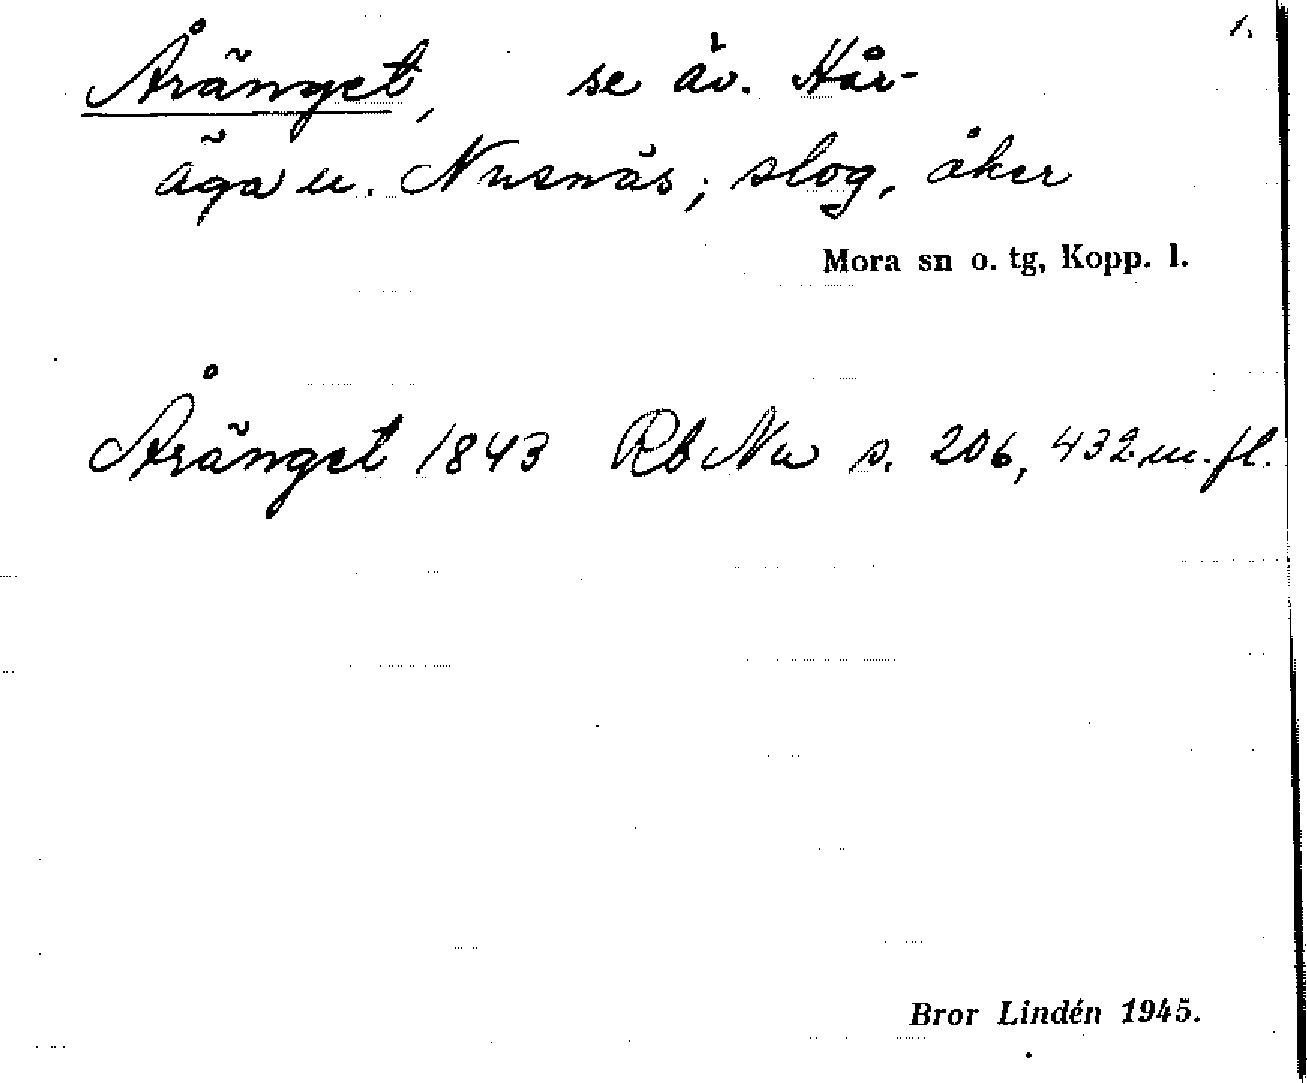 1.
Åränget, se äv. Hår-
äga u. Nusnäs; slog, åker
Mora sn o. tg, Kopp. l.
Åränget 1843 Rb Nu s. 206, 432 m. fl.
Bror Lindén 1945.